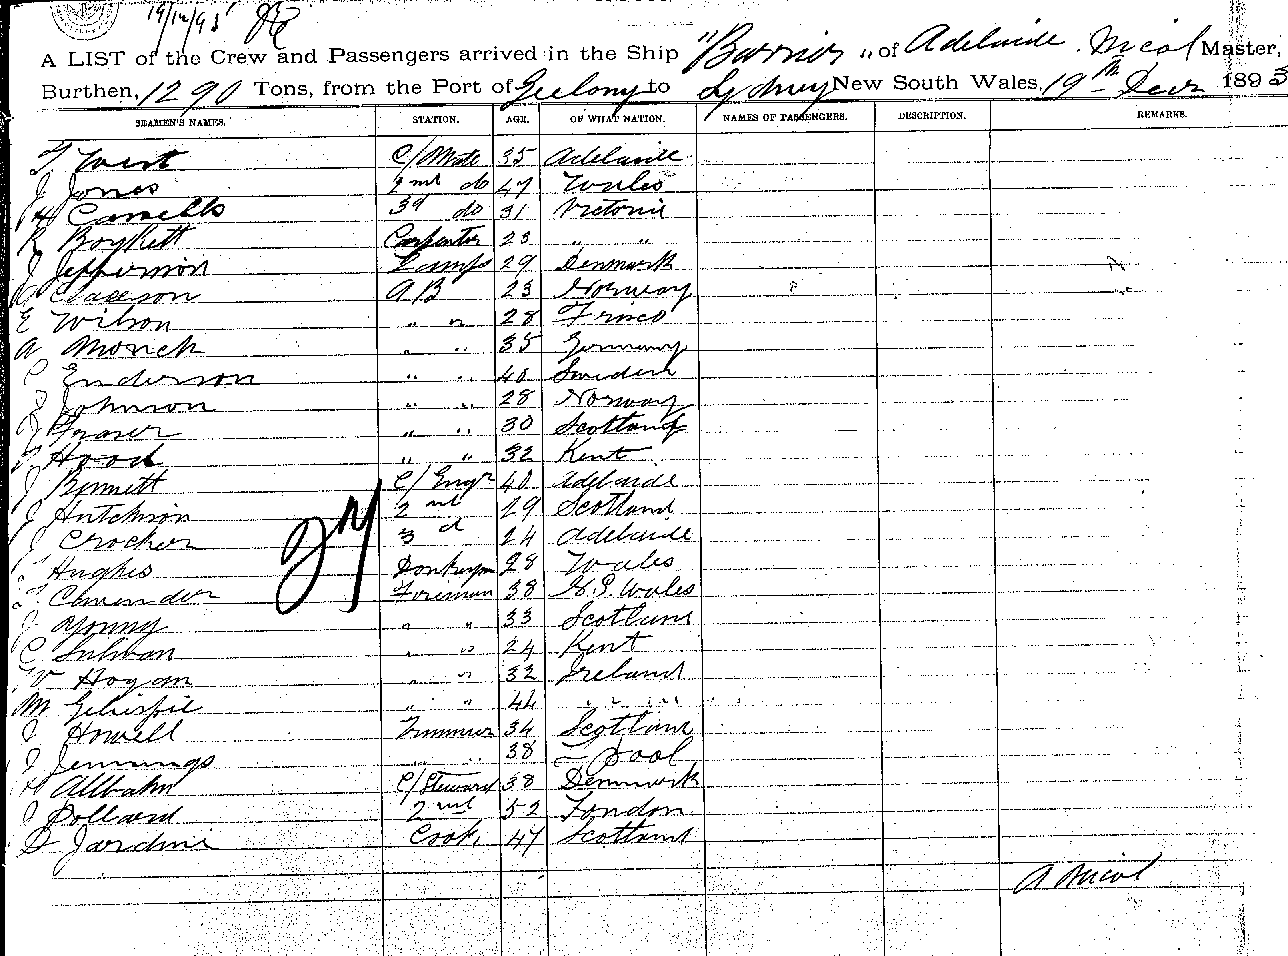 19/12/93
A LIST of the Crew and Passengers arrived in the Ship "Barrier" of Adelaide. Nicol Master,
Burthen, 1290 Tons, from the Port of Geelong to Sydney New South Wales, 19th Decr 1893
SEAMEN'S NAMES. STATION. AGE. OF WHAT NATION. NAMES OF PASSENGERS. DESCRIPTION. REMARKS.
T West C/Mate 35 Adelaide
J Jones 2nd do 47 Wales
H Camells 3d do 31 Victoria
R Boykett Carpenter 23 " "
J Jefferson Lamps 29 Denmark
Claeson AB 23 Norway
E Wilson " " 28 Frisco
A Monch " " 35 Germany
C Enderson " " 40 Sweden
J Johnson " " 28 Norway
J Fraser " " 30 Scotland
Hood " " 32 Kent
J Bennett C/Engr 40 Adelaide
J Hutchison 2nd 29 Scotland
J Crocker 3d 24 Adelaide
Hughes Donkeyman 28 Wales
Cavender Fireman 38 N.S. Wales
J Young " " 33 Scotland
C Sulivan " " 24 Kent
W Hogan " " 32 Ireland
M Gillespie " " 44 " "
J Howell Trimmer 34 Scotland
J Jennings " " 38 L-pool
Allbahn C/Steward 38 Denmark
J Pollard 2nd 52 London
D Jardine Cook 47 Scotland
27
A Nicol